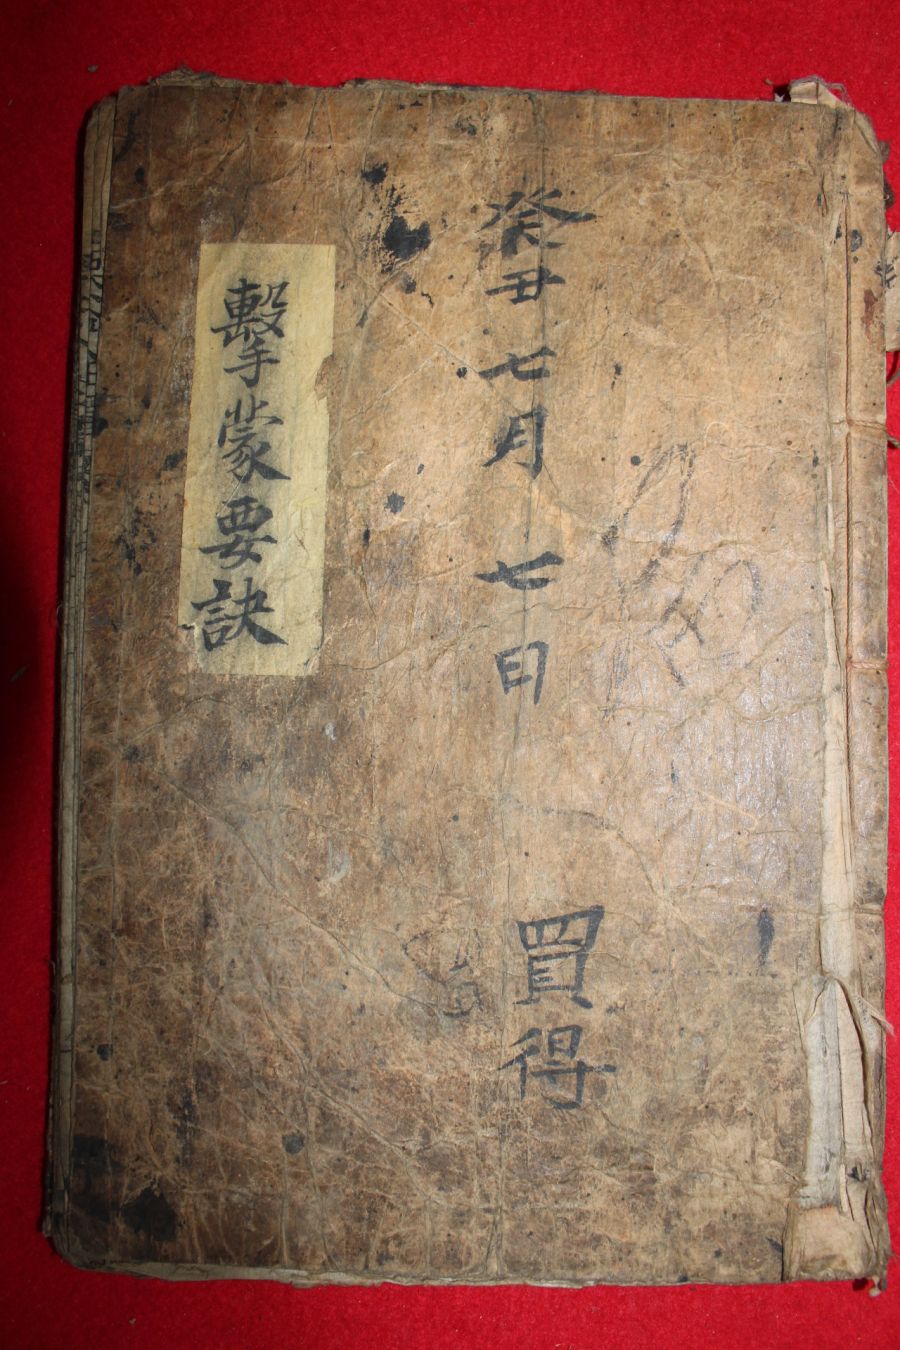 癸丑七月七日 買得
擊蒙要訣